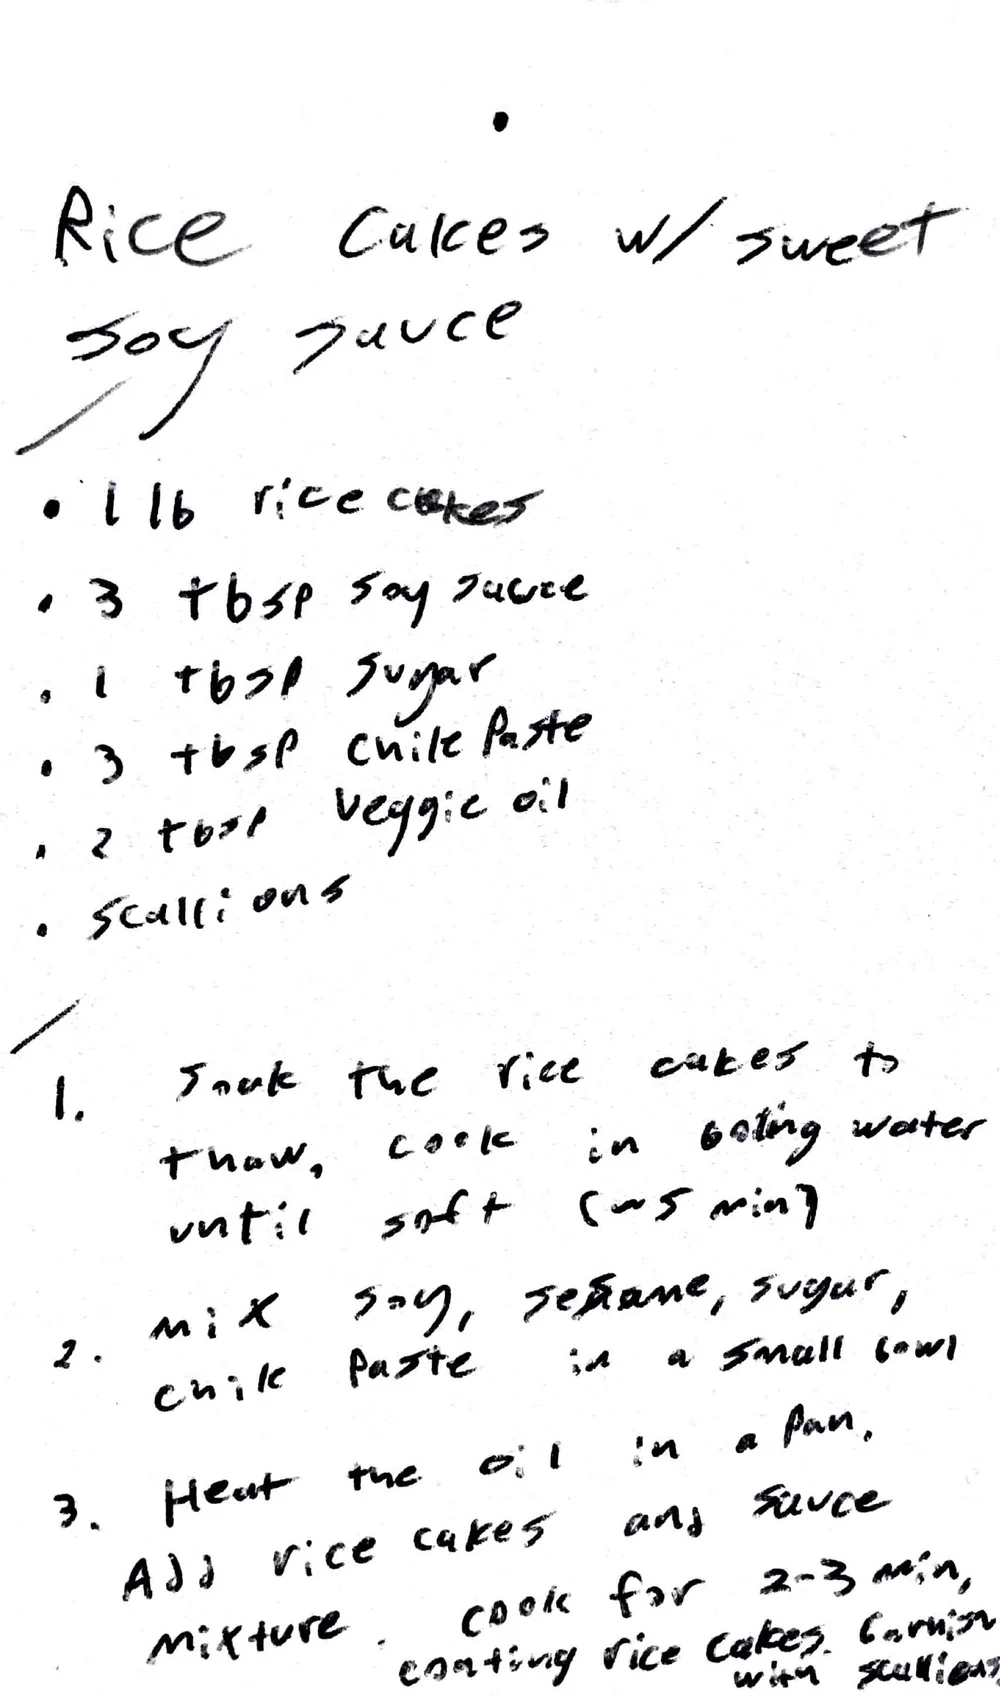 Rice Cakes w/ sweet
soy sauce
• 1 lb rice cakes
• 3 tbsp soy sauce
• 1 tbsp sugar
• 3 tbsp chile Paste
• 2 tbsp veggie oil
• scallions
1. Soak the rice cakes to
thaw, cook in boiling water
until soft (~5 min)
2. mix soy, sesame, sugar,
chile Paste in a small bowl
3. Heat the oil in a Pan.
Add rice cakes and sauce
mixture. cook for 2-3 min,
coating rice cakes. Garnish
with scallions